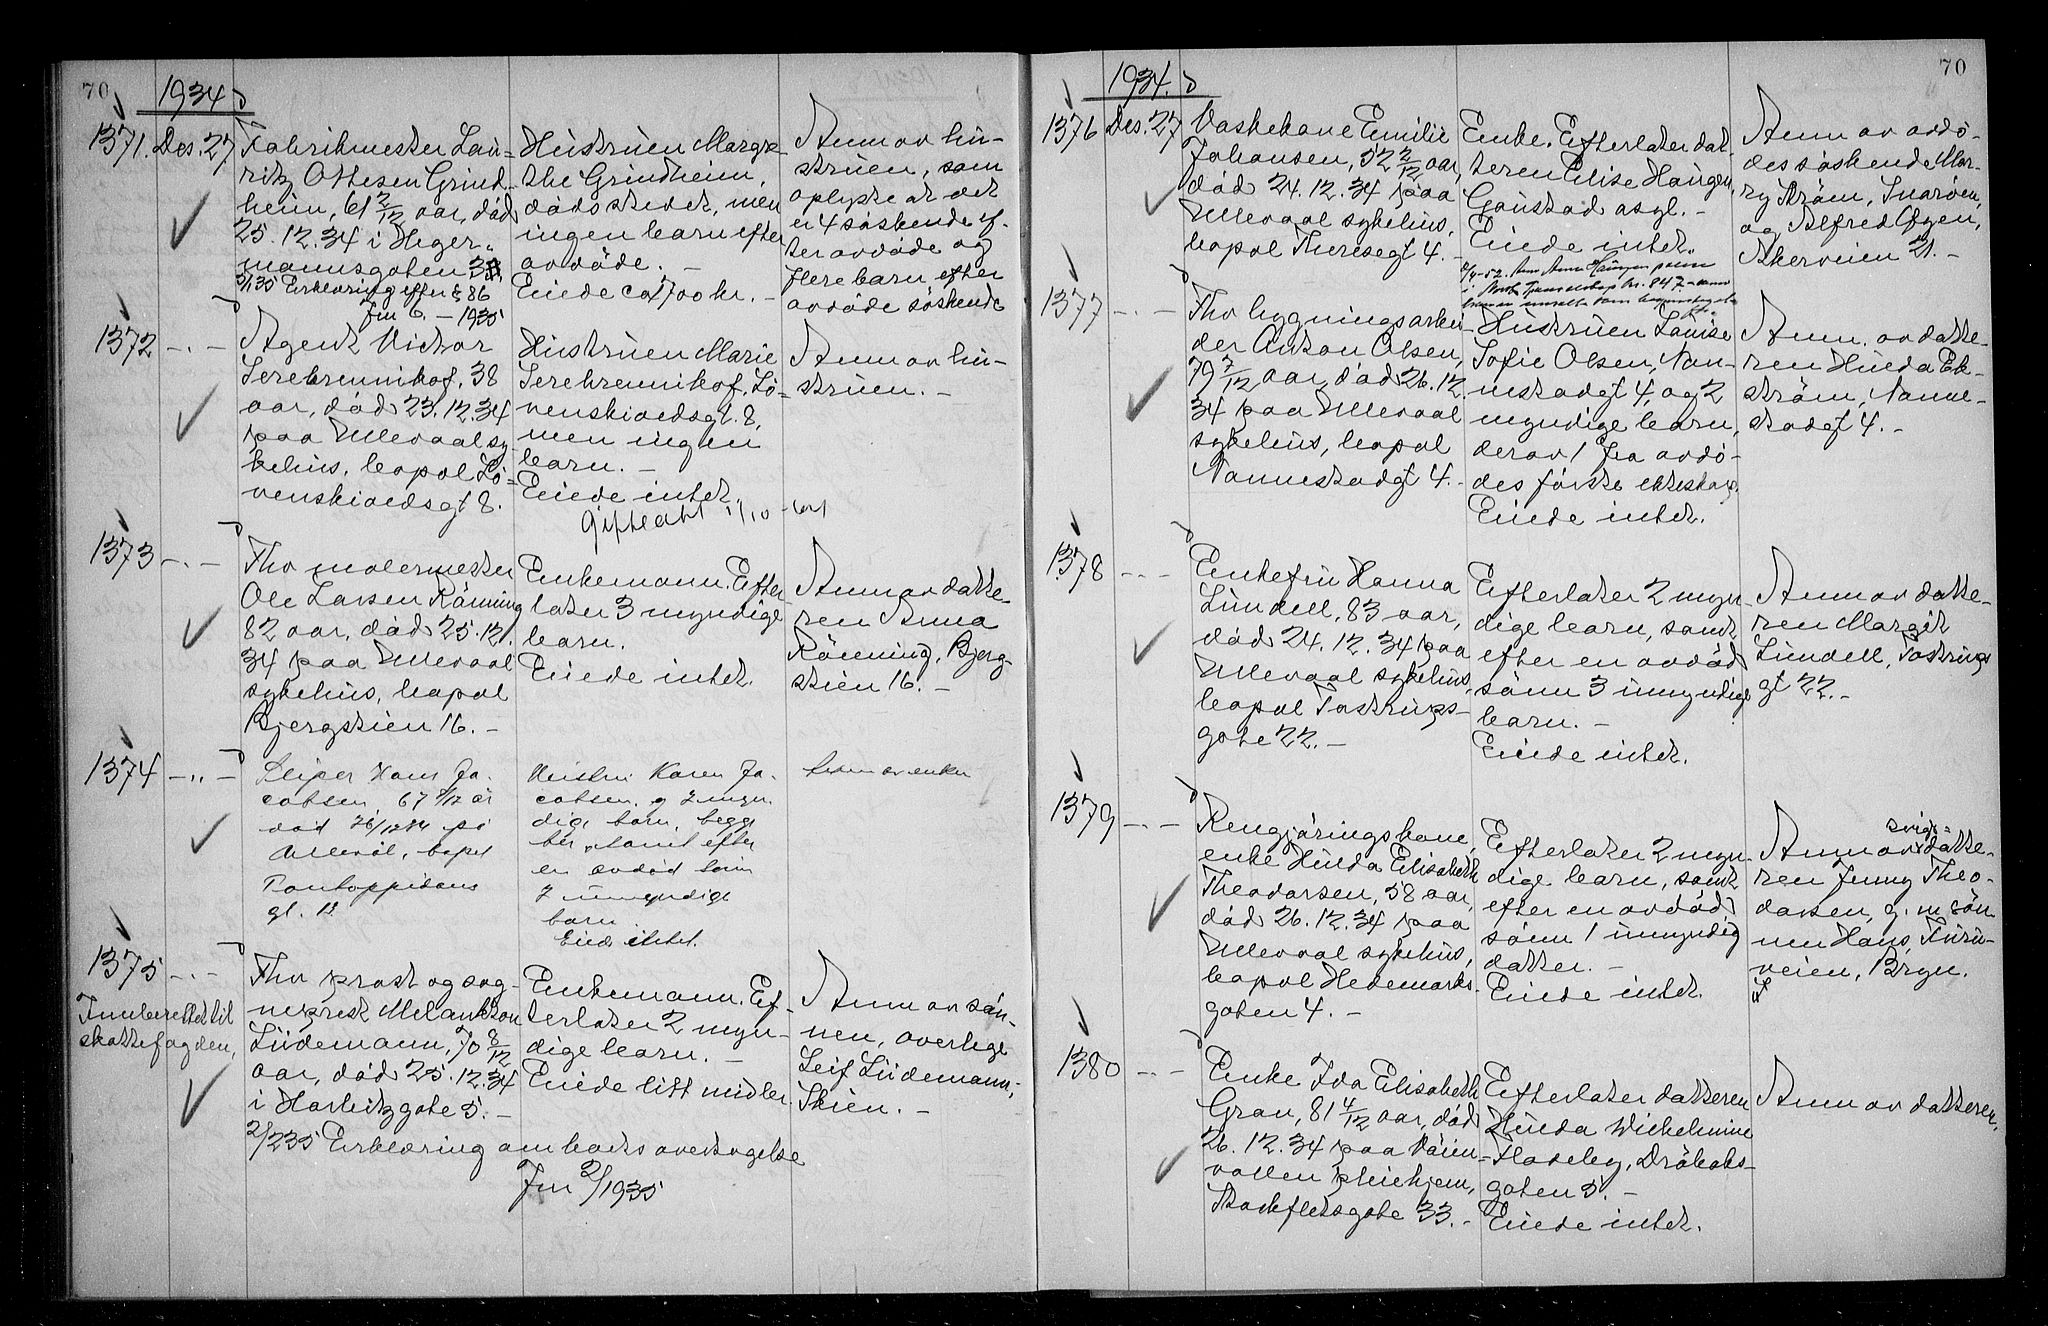 70
1934
1371. Des. 27
Fabrikmester Lau=
ritz Ottesen Grind=
heim, 61 2/12 aar, död
25.12.34 i Heger=
mannsgaten
3/1 35 Erklæring efter § 86
Jnl 6. - 1935
Hustruen Margre-
the Grindheim,
dödsstedet, men
ingen barn efter
avdöde. -
Eiede ca 1700 kr. -
Anm av hu-
struen, som
oplyste at det
er 4 söskende ef-
ter avdöde og
flere barn efter
avdöde söskende
1372 -"-
Agent Victor
Serebrennikof, 38
aar, död 23.12.34
paa Ullevaal sy-
kehus, bopæl Lö=
venskioldsgt 8.
Hustruen Marie
Serebrennikof, Lö=
venskioldsgt. 8,
men ingen
barn. -
Eiede intet.
Anm av hu-
struen. -
1373 -"-
Fhv malermester
Ole Larsen Rönning
82 aar, död 25.12.
34 paa Ullevaal
sykehus, bopæl
Bjergstien 16. -
Enkemann. Efter-
later 3 myndige
barn.
Eiede intet.
Anm av datte-
ren Anna
Rönning, Bjerg-
stien 16. -
1374 -"-
Sliper Hans Ja-
cobsen, 67 /12 år
död 26/12 34 på
Ullevål, bopel
Pontoppidans
gt.
Hustru Karen Ja-
cobsen og 2 myn-
dige barn, begge
her, samt efter
en avdød sønn
2 umyndige
barn
Eiede intet.
Anm av enken
1375 -"-
Innberettet til
skattefogden,
Fhv prost og sog-
neprest Melankton
Lüdemann, 70 8/12
aar, död 25.12.34
i Harbitzgate 5. -
2/2 35 Erklæring om boets overtagelse
Jnl 2/1935
Enkemann. Ef-
terlater 2 myn-
dige barn. -
Eiede litt midler.
Anm av sön-
nen, overlege
Leif Lüdemann,
Skien. -
70
1934.
1376 Des. 27
Vaskekone Emilie
Johansen, 52 2/12 aar,
död 24.12.34 paa
Ullevaal sykehus,
bopæl Theresegt 4. -
Enke. Efterlater dat-
teren Elise Haugen,
Gaustad asyl. -
Eiede intet.
Anm av avdö-
des söskende Har-
ry Ström, Snaröen,
og Alfred Olsen,
Akerveien 21. -
1377 -"-
Fhv bygningsarbei-
der Anton Olsen,
79 7/12 aar, död 26.12.
34 paa Ullevaal
sykehus, bopæl
Nannestadgt 4. -
Hustruen Lovise
Sofie Olsen, Nan-
nestadgt 4, og 2
myndige barn,
derav 1 fra avdö-
des förste ekteskap.
Eiede intet.
Anm. av datte-
ren Hulda Ek-
ström, Nanne-
stadgt 4. -
1378 -"-
Enkefru Hanna
Lundell, 83 aar,
död 24.12.34 paa
Ullevaal sykehus,
bopæl Tostrups-
gate 22. -
Efterlater 2 myn-
dige barn, samt
efter en avdöd
sönn 3 umyndige
barn. -
Eiede intet.
Anm av datte-
ren Margit
Lundell, Tostrups
gt 22. -
1379 -"-
Rengjöringskone,
enke Hulda Elisabeth
Theodorsen, 58 aar,
död 26.12.34 paa
Ullevaal sykehus,
bopæl Hedemarks-
gaten 4. -
Efterlater 2 myn-
dige barn, samt
efter en avdöd
sönn 1 umyndig
datter. -
Eiede intet.
sviger=
Anm av datte-
ren Jenny Theo-
dorsen, g. m. sön-
nen Hans, Furu-
veien, Bryn.
1380 -"-
Enke Ida Elisabeth
Gran, 81 4/12 aar, död
26.12.34 paa Vöien-
vollen pleiehjem,
Stockfletsgate 33. -
Efterlater datteren
Hulda Wilhelmine
Flaseby, Dröbaks-
gaten 5. -
Eiede intet.
Anm av datteren.